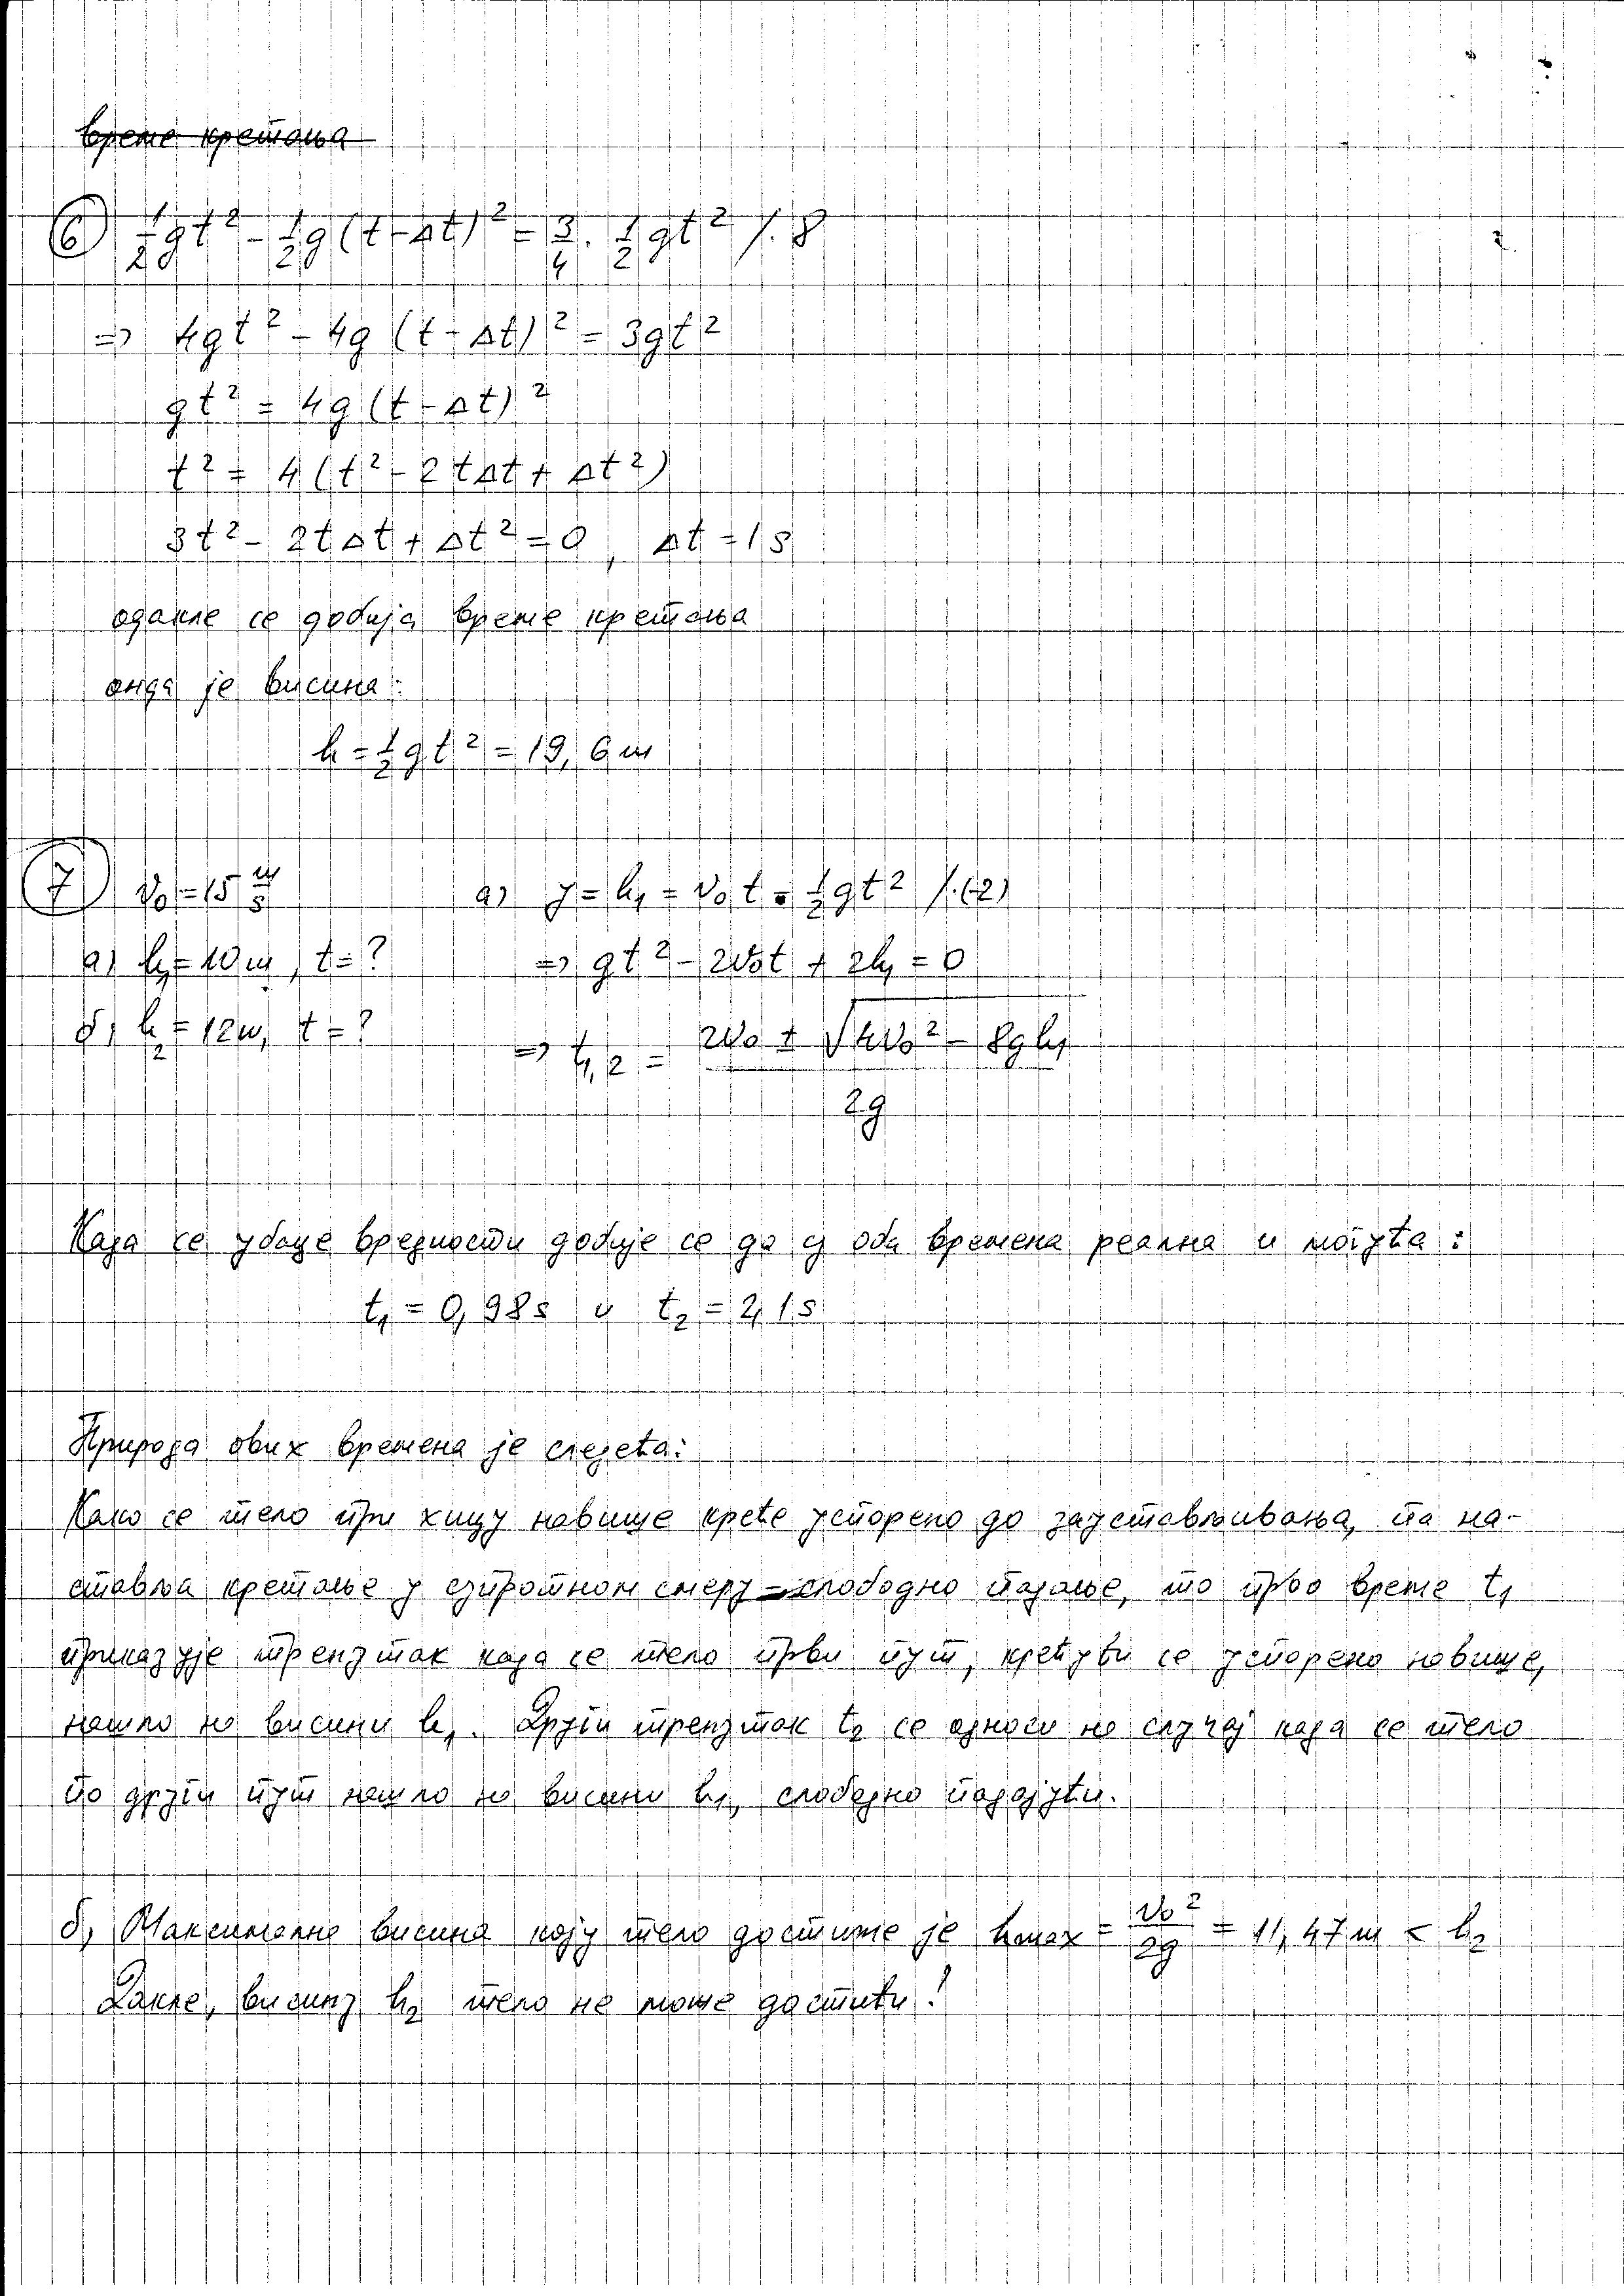 време кретања
6 1/2 gt² - 1/2 g(t-Δt)² = 3/4 · 1/2 gt² /·8
=> 4gt² - 4g(t-Δt)² = 3gt²
gt² = 4g(t-Δt)²
t² = 4(t² - 2tΔt + Δt²)
3t² - 2tΔt + Δt² = 0, Δt = 1s
одакле се добија време кретања
онда је висина:
h = 1/2 gt² = 19,6m
7 v₀ = 15 m/s а) y = h₁ = v₀t - 1/2 gt² /·(-2)
а) h₁ = 10m, t = ? => gt² - 2v₀t + 2h₁ = 0
б) h₂ = 12m, t = ? => t₁,₂ = (2v₀ ± √(4v₀² - 8gh₁)) / 2g
Када се убаце вредности добије се да су оба времена реална и могућа:
t₁ = 0,98s и t₂ = 2,1s
Природа ових времена је следећа:
Како се тело при хицу навише креће успорено до заустављивања, па на-
ставља кретање у супротном смеру - слободно падање, то прво време t₁
приказује тренутак када се тело први пут, крећући се успорено навише,
нашло на висини h₁. Други тренутак t₂ се односи на случај када се тело
по други пут нашло на висини h₁, слободно падајући.
б) Максимална висина коју тело достиже је hmax = v₀²/2g = 11,47m < h₂
Дакле, висину h₂ тело не може достићи!